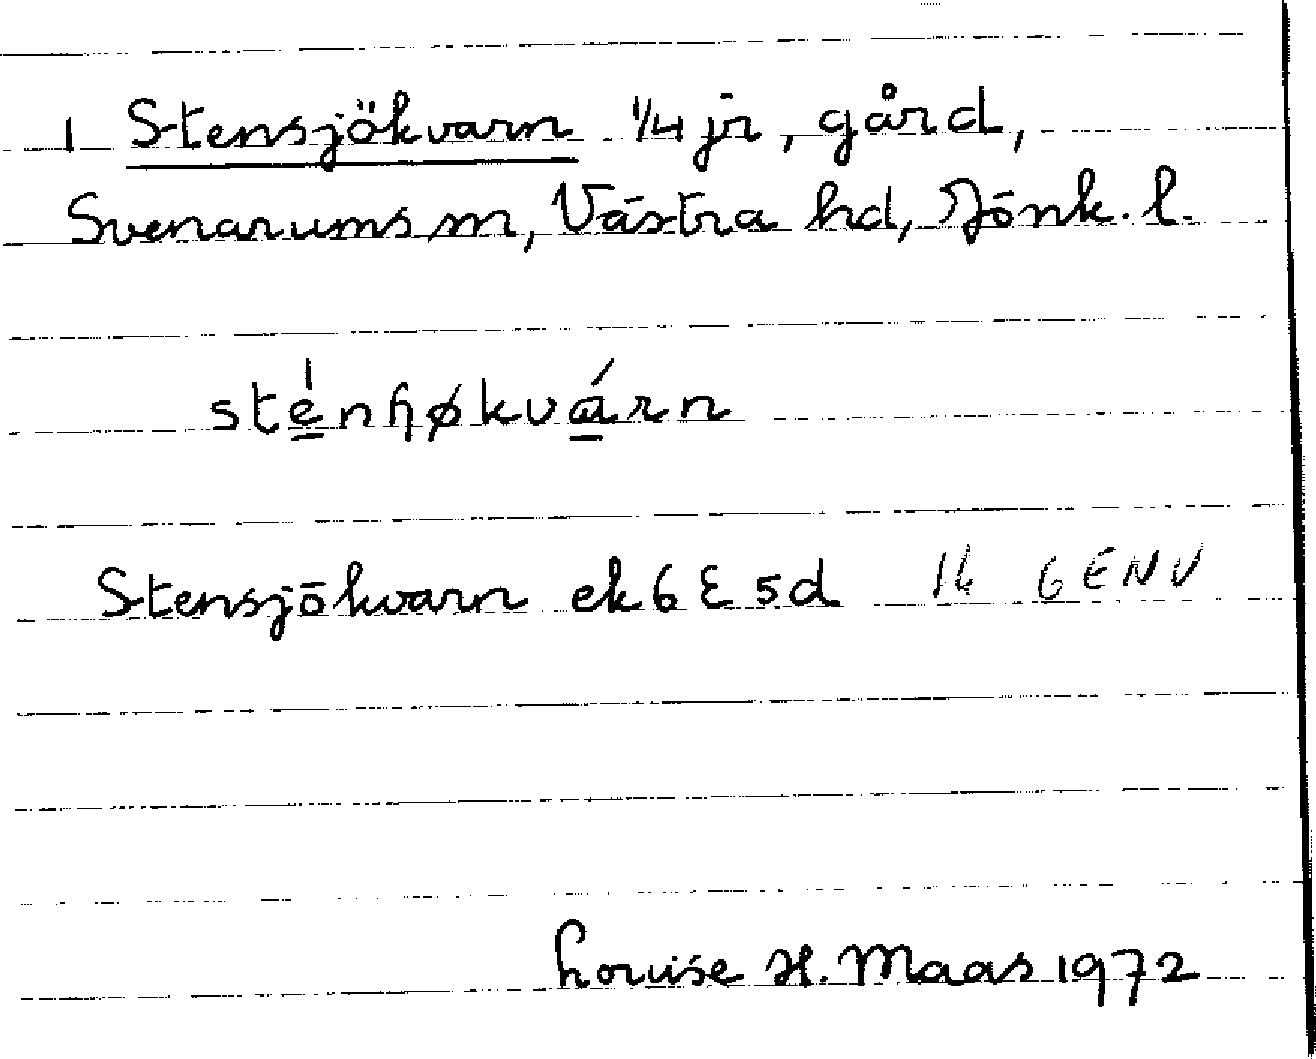 1 Stensjökvarn 1/4 jr, gård,
Svenarums sn, Västra hd, Jönk. l.
sténɧøkvárn
Stensjökvarn ek 6 E 5d 14 6ENV
Louise H. Maas 1972